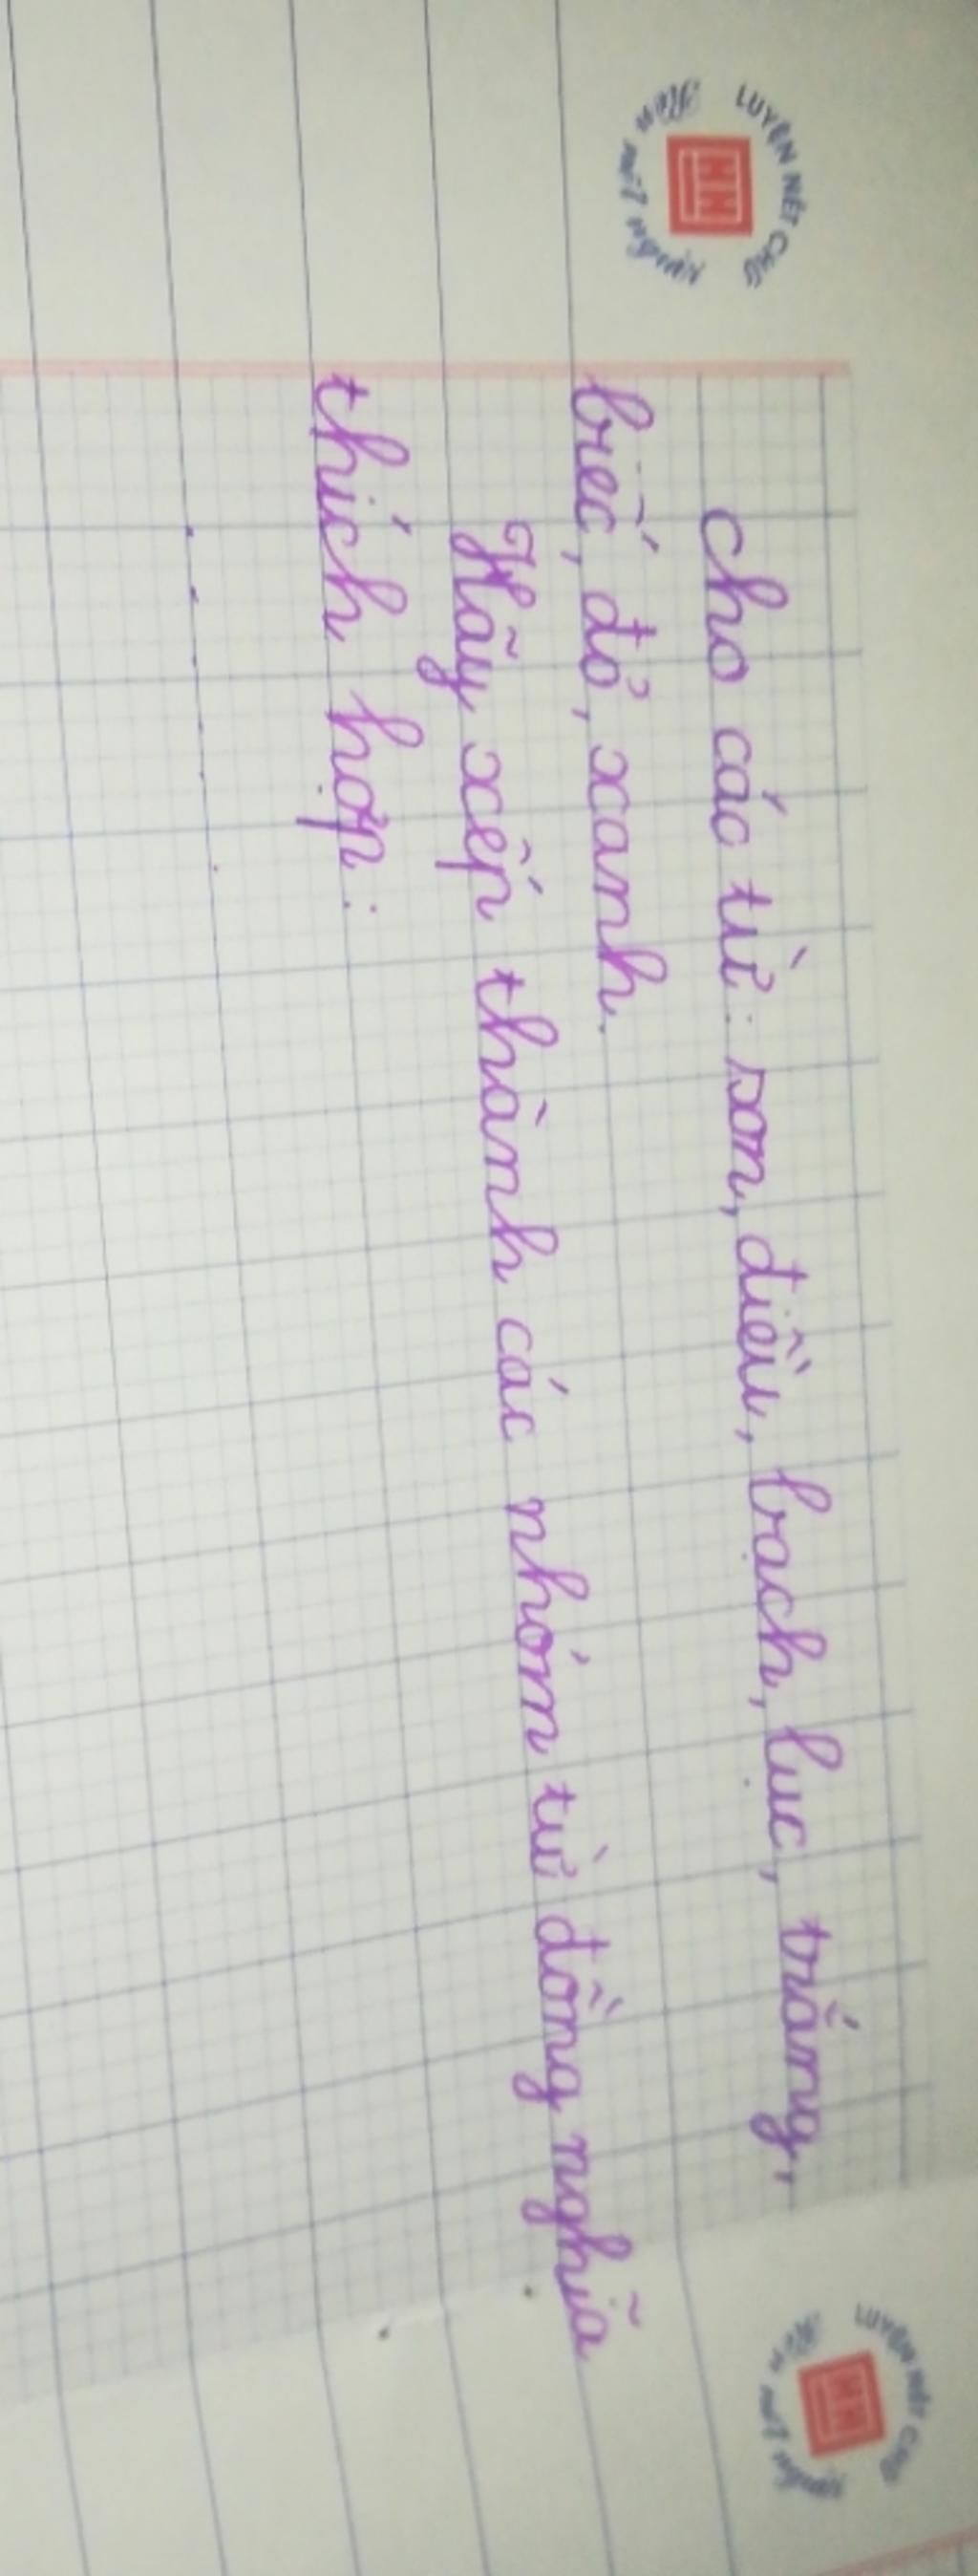 LUYỆN NÉT CHỮ
Rèn nết người
Cho các từ: son, điều, bạch, lục, trắng,
biếc, đỏ, xanh.
Hãy xếp thành các nhóm từ đồng nghĩa
thích hợp:
LUYỆN NÉT CHỮ
Rèn nết người